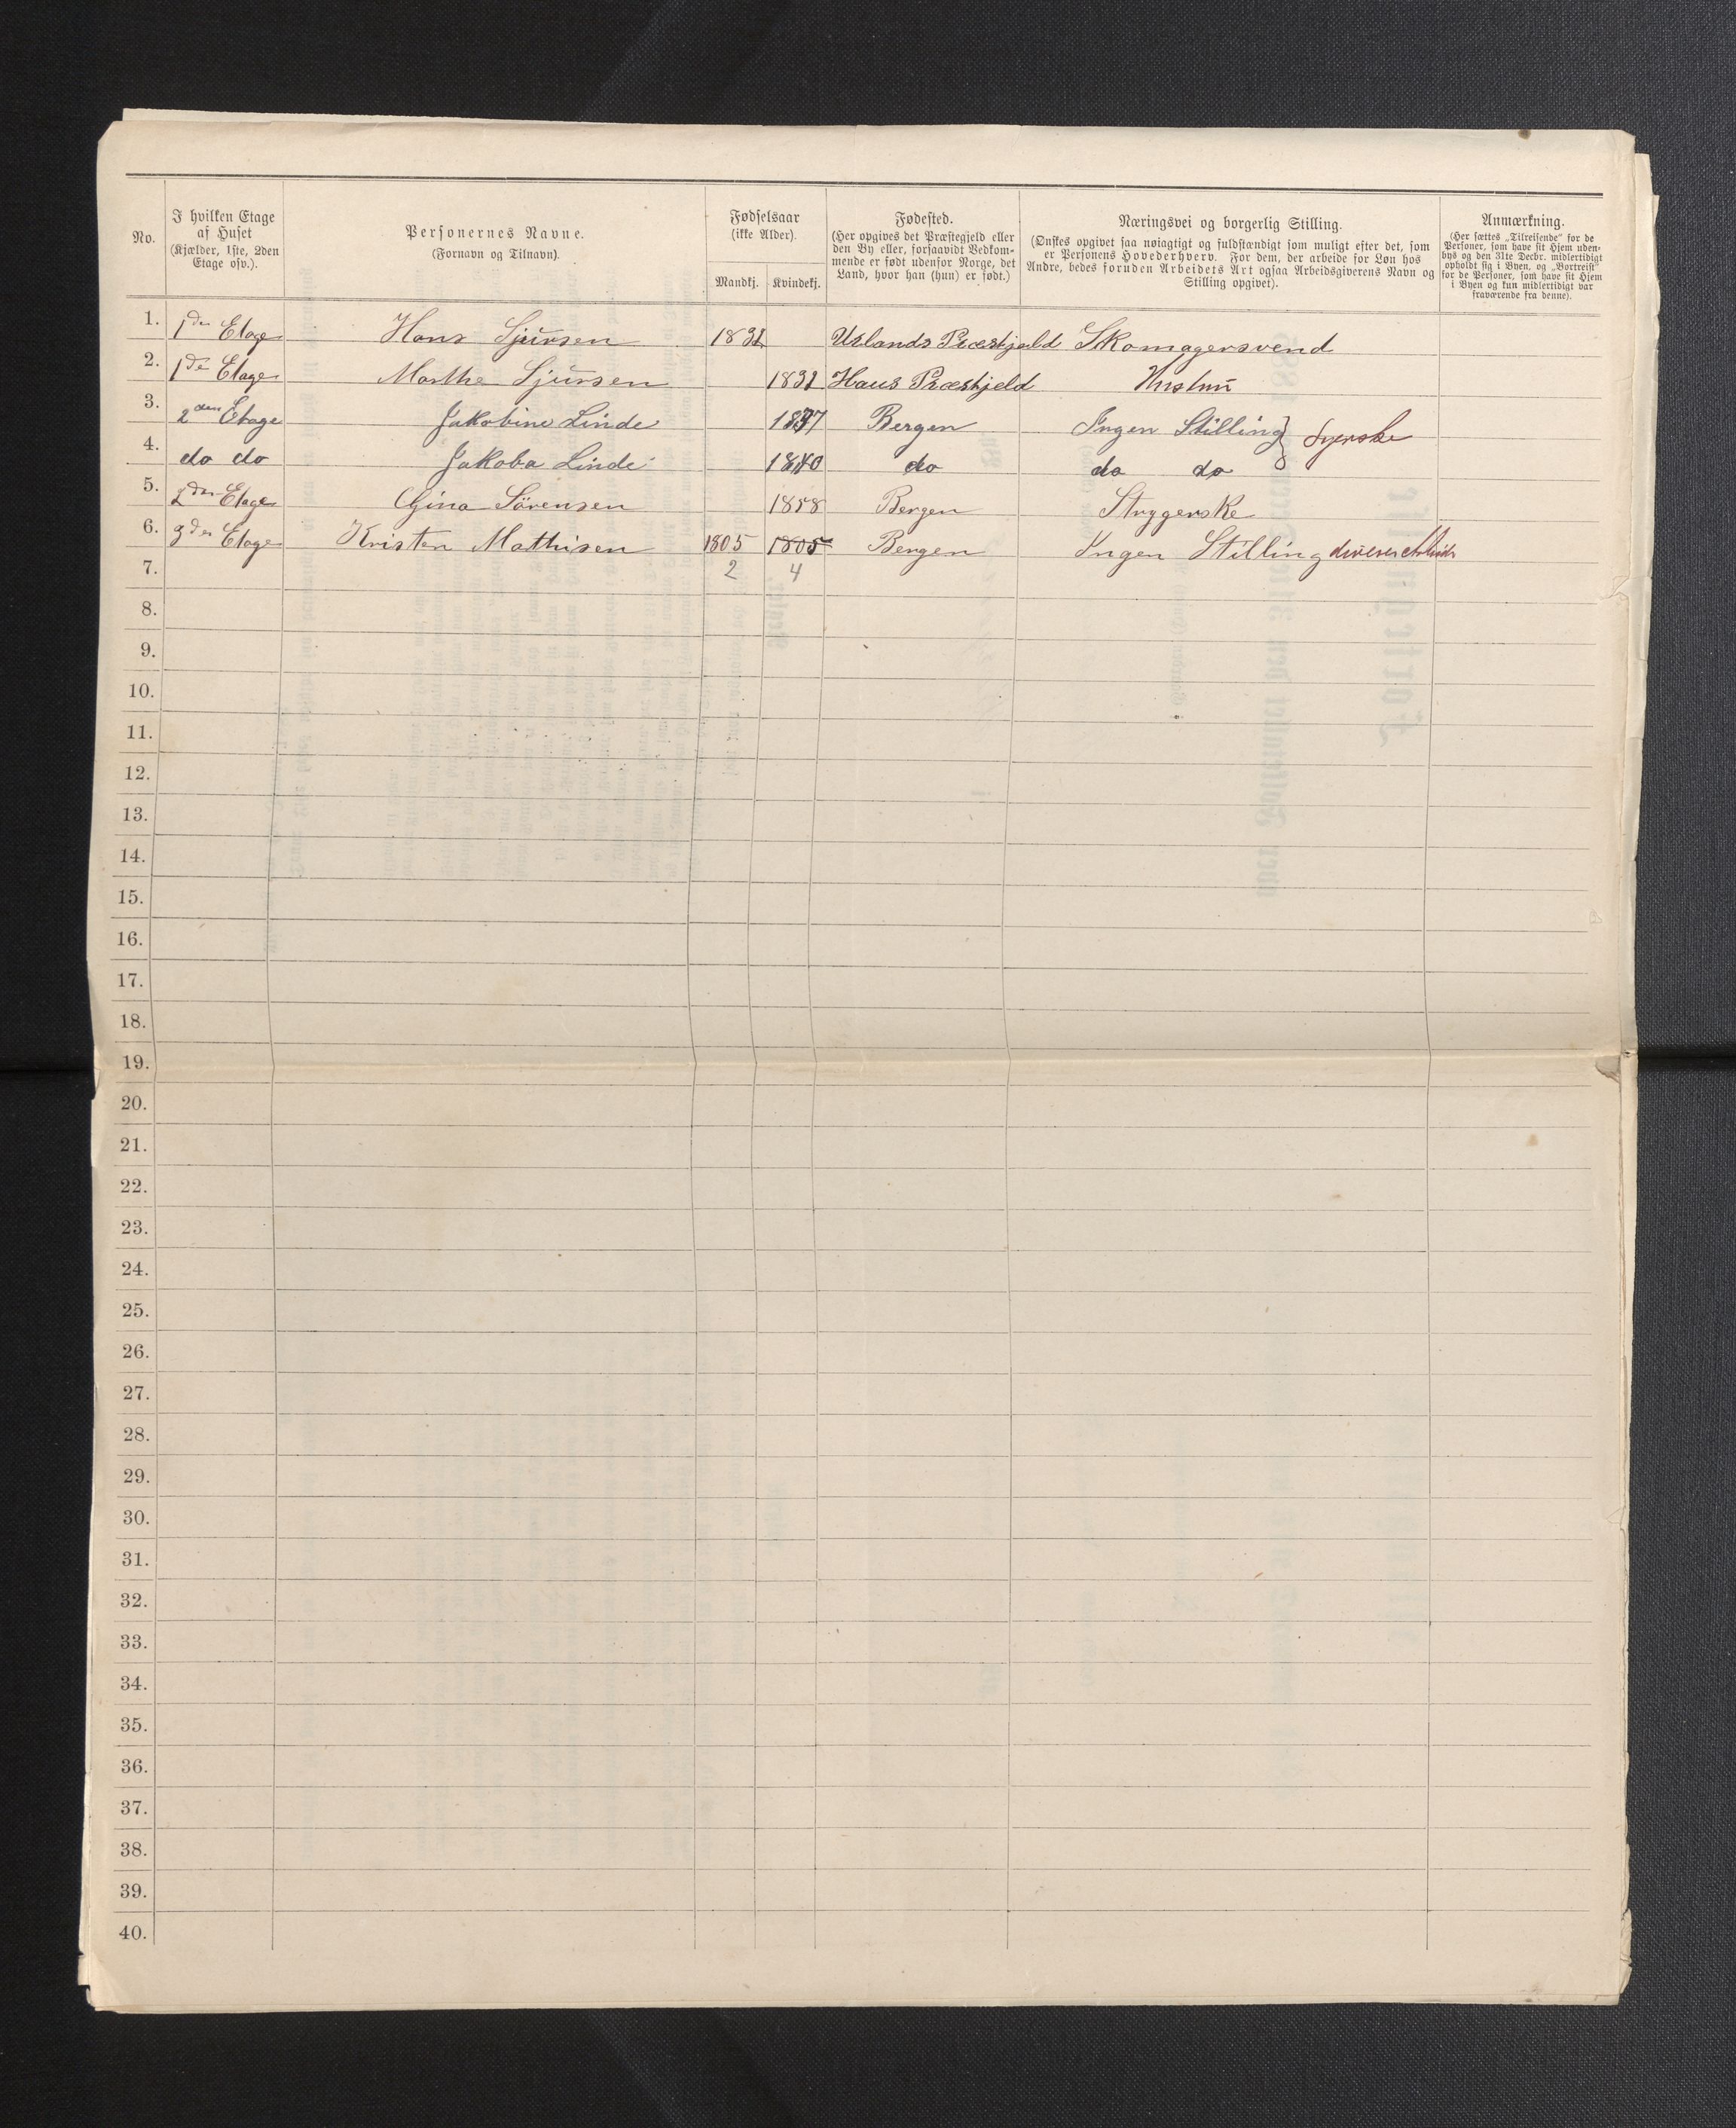 No.	I hvilken Etage af Huset (Kjælder, 1ste, 2den Etage osv.).	Personernes Navne. (Fornavn og Tilnavn).	Fødselsaar (ikke Alder). Mandkj. Kvindekj.	Fødested. (Her opgives det Præstegjeld eller den By eller, forsaavidt Vedkommende er født udenfor Norge, det Land, hvor han (hun) er født.)	Næringsvei og borgerlig Stilling. (Ønskes opgivet saa nøiagtigt og fuldstændigt som muligt efter det, som er Personens Hovederhverv. For dem, der arbeide for Løn hos Andre, bedes foruden Arbeidets Art ogsaa Arbeidsgiverens Navn og Stilling opgivet).	Anmærkning. (Her sættes „Tilreisende“ for de Personer, som have sit Hjem udenbys og den 31te Decbr. midlertidigt opholdt sig i Byen, og „Bortreist“ for de Personer, som have sit Hjem i Byen og kun midlertidigt var fraværende fra denne).
1. 1den Etage Hans Sjursen 1831 Urlands Præstjeld Skomagersvend
2. 1de Etage Marthe Sjursen 1831 Haus Præstjeld Hustru
3. 2den Etage Jakobine Linde 1837 Bergen Ingen Stilling } Syerske
4. do do Jakoba Linde 1840 do do do
5. 2den Etage Gina Sörensen 1858 Bergen Strygerske
6. 3den Etage Kristen Mathisen 1805 1805 Bergen Ingen Stilling diverse Arbeide
7. 2 4
8.
9.
10.
11.
12.
13.
14.
15.
16.
17.
18.
19.
20.
21.
22.
23.
24.
25.
26.
27.
28.
29.
30.
31.
32.
33.
34.
35.
36.
37.
38.
39.
40.